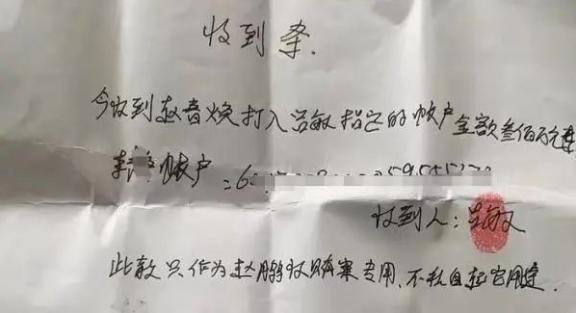 收到条.
今收到赵音焕打入吕敏指定的帐户金额叁佰万元整
帐户:6
收到人:吕敏
此款只作为赵鹏 案专用.不私自起它用途.